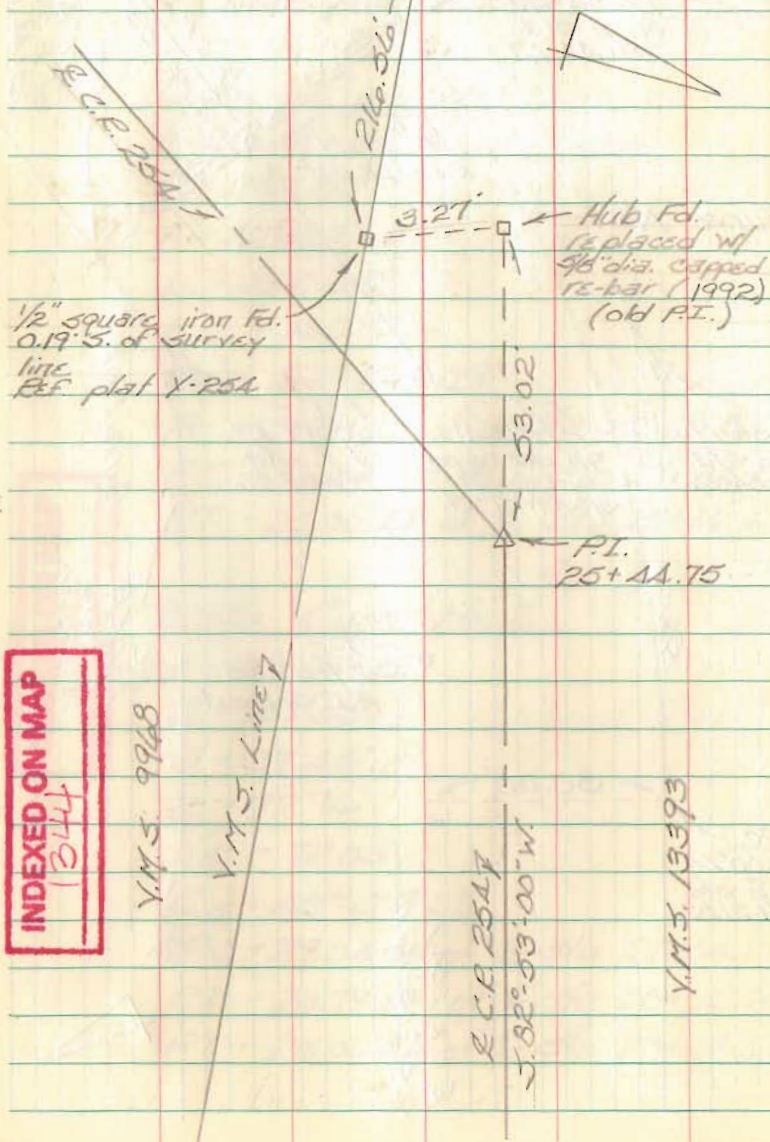 ℄ C.R. 254
216.56'
3.27'
Hub Fd.
replaced w/
5/8" dia. capped
re-bar (1992)
(old P.I.)
1/2" square iron Fd.
0.19' S. of survey
line
Ref. plat Y-254
53.02'
P.I.
25+44.75
INDEXED ON MAP
1344
V.M.S. 9968
V.M.S. Line
℄ C.R. 254
S.82°-53'-00"W.
V.M.S. 13393